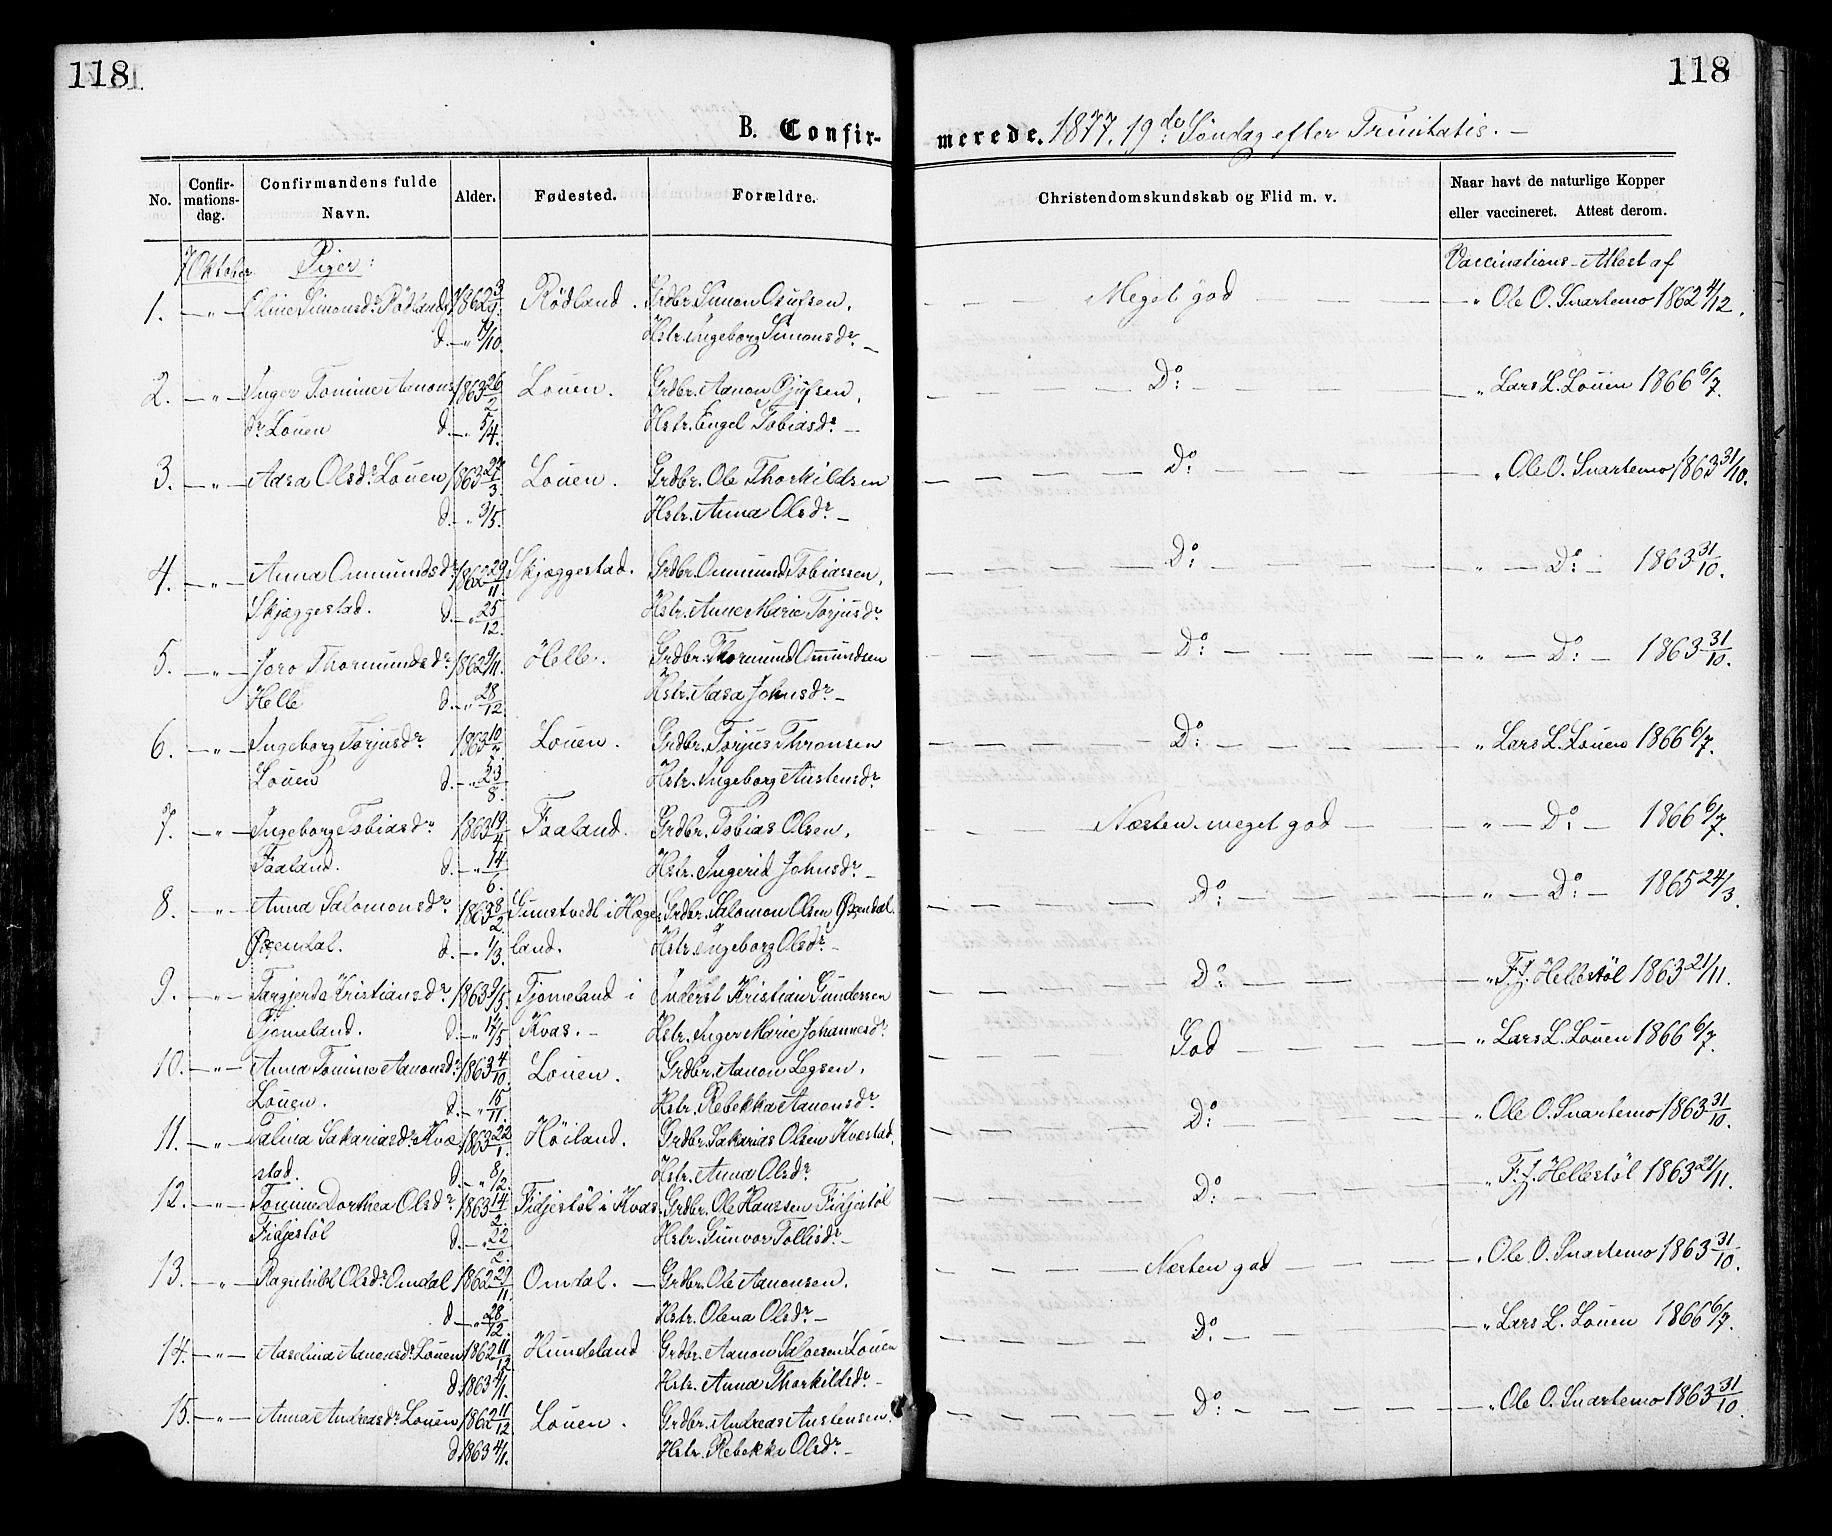 118.
118
B. Confir-
merede. 1877. 19de Søndag efter Trinitatis. —
No.
Confir-mations-dag.
Confirmandens fulde Navn.
Alder.
Fødested.
Forældre.
Christendomskundskab og Flid m. v.
Naar havt de naturlige Kopper eller vaccineret. Attest derom.
7 Oktober Piger: Vaccinations-Attest af
1. — „ — Eline Simonsdr. Rødland 1862 Rødland. Grdbr. Simon Osufsen, — — — Meget god — — — „ Ole O. Snartemo 1862 4/12.
d. — „ 19/10. Hstr. Ingeborg Simonsdr. —
2. — „ — Inger Tomine Aanons 1863 26/2 Louen. Grdbr. Aanon Gjufsen, — — — Do: — — — „ Lars L. Louen 1866 6/7.
dr. Louen d. — „ 5/4. Hstr. Engel Tobiasdr. —
3. — „ — Aasa Olsdr. Louen 1863 27/3. Louen. Grdbr. Ole Thorkildsen — — — Do: — — — „ Ole O. Snartemo 1863 31/10.
d. — „ 3/5. Hstr. Anna Olsdr. —
4. — „ — Anna Ommundsdr. 1862 29/11 Skjæggestad. Grdbr. Ommund Tobiassen, — — — Do: — — — „ — Do: — 1863 31/10.
Skjæggestad. d. — „ 25/12. Hstr. Anne Marie Torjusdr.
5. — „ — Joro Thormundsdr. 1862 9/11. Helle. Grdbr. Thormund Ommundsen — — — Do: — — — „ — Do: — 1863 31/10.
Helle d. — „ 28/12. Hstr. Aasa Johnsdr. —
6. — „ — Ingeborg Torjusdr. 1863 10/7 Louen. Grdbr. Torjus Thronsen — — — Do: — — — „ Lars L. Louen 1866 6/7.
Louen d. — „ 23/8. Hstr. Ingeborg Austensdr.
7. — „ — Ingeborg Tobiasdr. 1863 19/4 Faaland. Grdbr. Tobias Olsen, — — — Næsten meget god — — „ — Do: — 1866 6/7.
Faaland. d. — „ 14/6. Hstr. Ingerid Johnsdr. —
8. — „ — Anna Salomonsdr. 1863 8/2. Gumstvedt i Hæge- Grdbr. Salomon Olsen Øxendal. — — — Do: — — — „ — Do: — 1865 24/3.
Øxendal. d. — „ 1/3. land. Hstr. Ingeborg Olsdr. —
9. — „ — Targjerd Kristiansdr. 1863 9/5. Tjomeland i Inderst Kristian Gundersen — — — Do: — — — „ F. J. Hellestøl 1863 21/11.
Tjomeland. d. — „ 17/5 Kvas. — Hstr. Inger Marie Johannesdr.
10. — „ — Anna Tomine Aanonsdr. 1863 4/10. Louen. Grdbr. Aanon Legsen, — — — God — — — „ Lars L. Louen 1866 6/7.
Louen. d. — „ 15/11. Hstr. Rebekka Aanonsdr.
11. — „ — Talina Sakariasdr. Kvæ 1863 22/1. Höiland. Grdbr. Sakarias Olsen Kvæstad. — — — Do: — — — „ Ole O. Snartemo 1863 31/10.
stad. d. — „ 8/2. Hstr. Anna Olsdr.
12. — „ — Tomine Dorthea Olsdr. 1863 14/2. Fidjestøl i Kvas. Grdbr. Ole Hanssen Fidjestøl — — — Do: — — — „ F. J. Hellestøl 1863 21/11.
Fidjestøl d. — „ 22/2. Hstr. Gunvor Tollisdr. —
13. — „ — Ragnhild Olsdr. Omdal 1862 29/11 Omdal. — Grdbr. Ole Aanonsen. — — — Næsten god — — — „ Ole O. Snartemo 1863 31/10.
d. — „ 28/12. Hstr. Olena Olsdr. —
14. — „ — Aaselina Aanensdr. Louen 1862 11/12 Hundeland Grdbr. Aanon Salvesen Louen — — — Do: — — — „ Lars L. Louen 1866 6/7.
d. 1863 4/1. Hstr. Anna Thorkildsdr. —
15. — „ — Anna Andreasdr. Louen 1862 11/12 Louen. Grdbr. Andreas Austensen. — — — Do: — — — „ Ole O. Snartemo 1863 31/10.
d. 1863 4/1. Hstr. Rebekka Olsdr. —